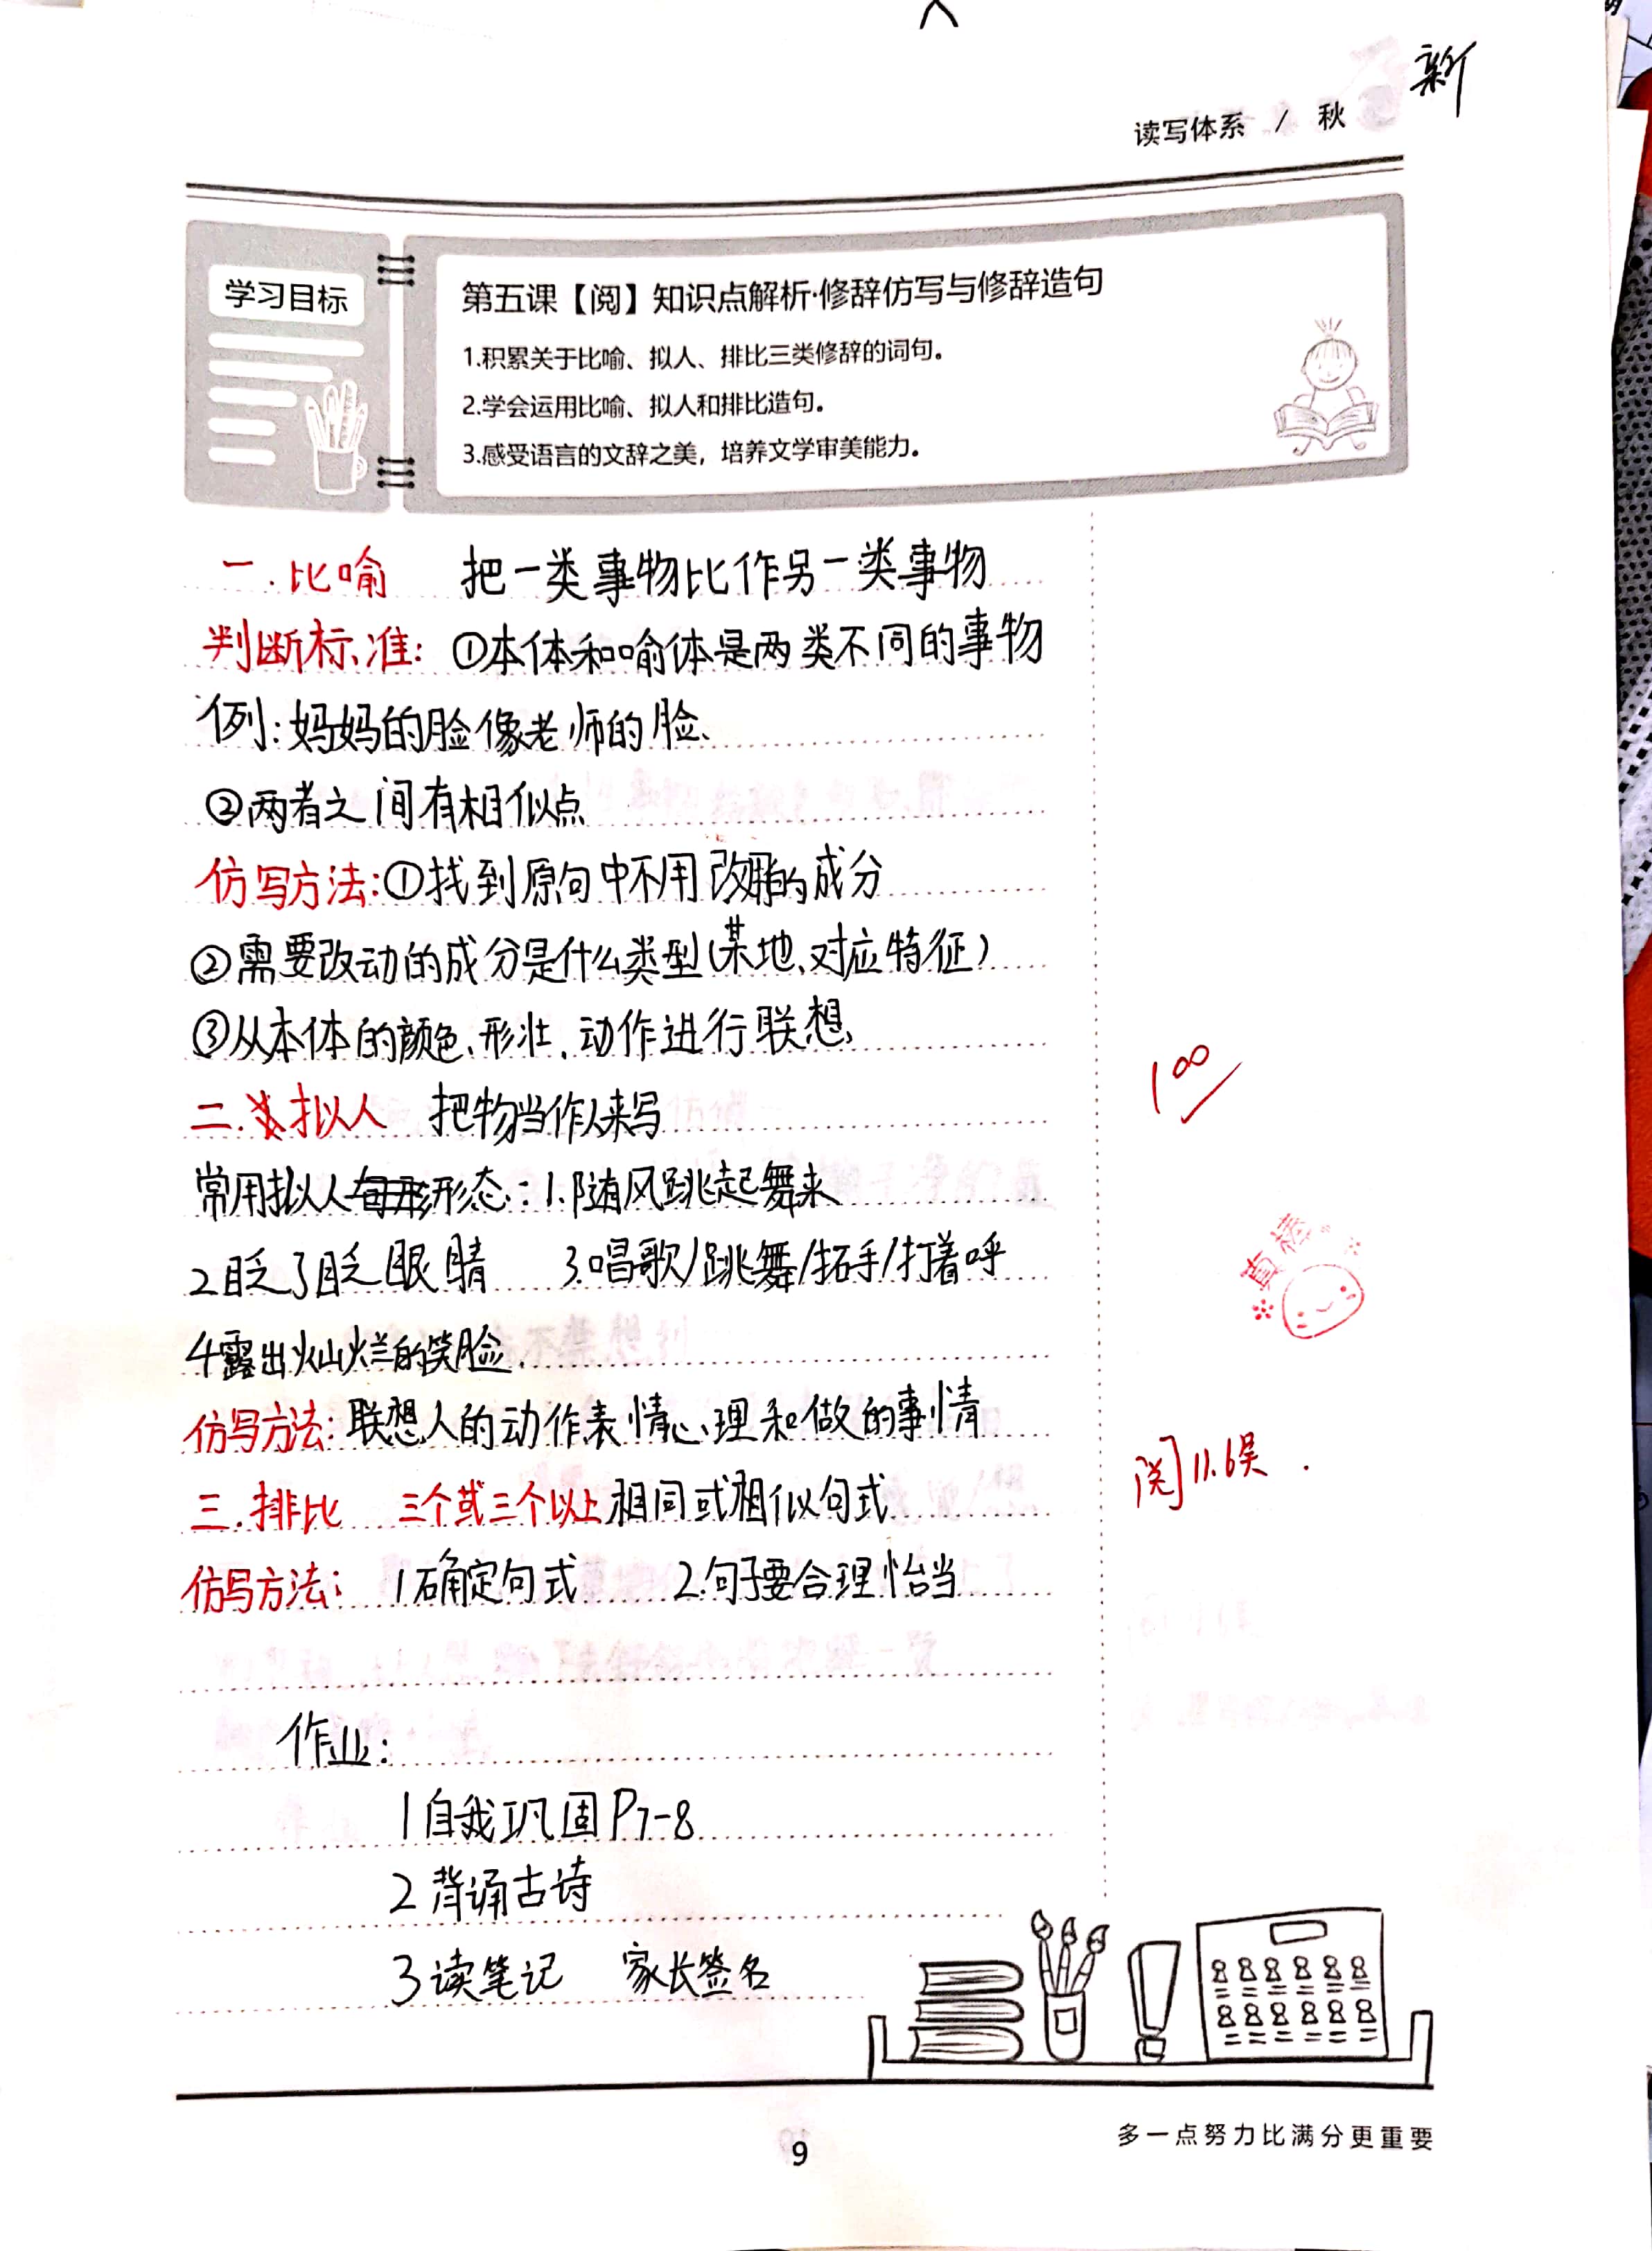 新
读写体系 / 秋
学习目标
第五课【阅】知识点解析·修辞仿写与修辞造句
1.积累关于比喻、拟人、排比三类修辞的词句。
2.学会运用比喻、拟人和排比造句。
3.感受语言的文辞之美，培养文学审美能力。
一.比喻 把一类事物比作另一类事物
判断标准：①本体和喻体是两类不同的事物
例：妈妈的脸像老师的脸、
②两者之间有相似点
仿写方法：①找到原句中不用改的成分
②需要改动的成分是什么类型（某地、对应特征）
③从本体的颜色、形壮、动作进行联想、
二.拟人 把物当作人来写
常用拟人形态：1.随风跳起舞来
2眨了眨眼睛 3.唱歌/跳舞/拓手/打着呼
4露出灿烂的笑脸.
仿写方法：联想人的动作表情心理和做的事情
三.排比 三个或三个以上相同或相似句式
仿写方法： 1确定句式 2.句子要合理怡当
100
真棒
阅11.6吴.
作业：
1自我巩固P7-8
2背诵古诗
3读笔记 家长签名
多一点努力比满分更重要
9